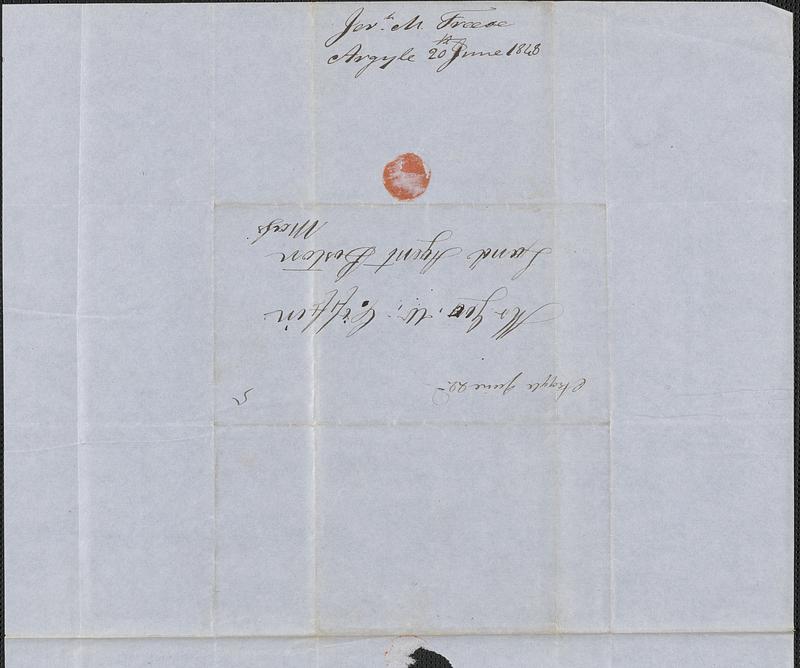 Jer.h M. Freese
Argyle 20th June 1848
Argyle June 22
5
Mr Geo. W. Coffin
Land Agent Boston
Mass